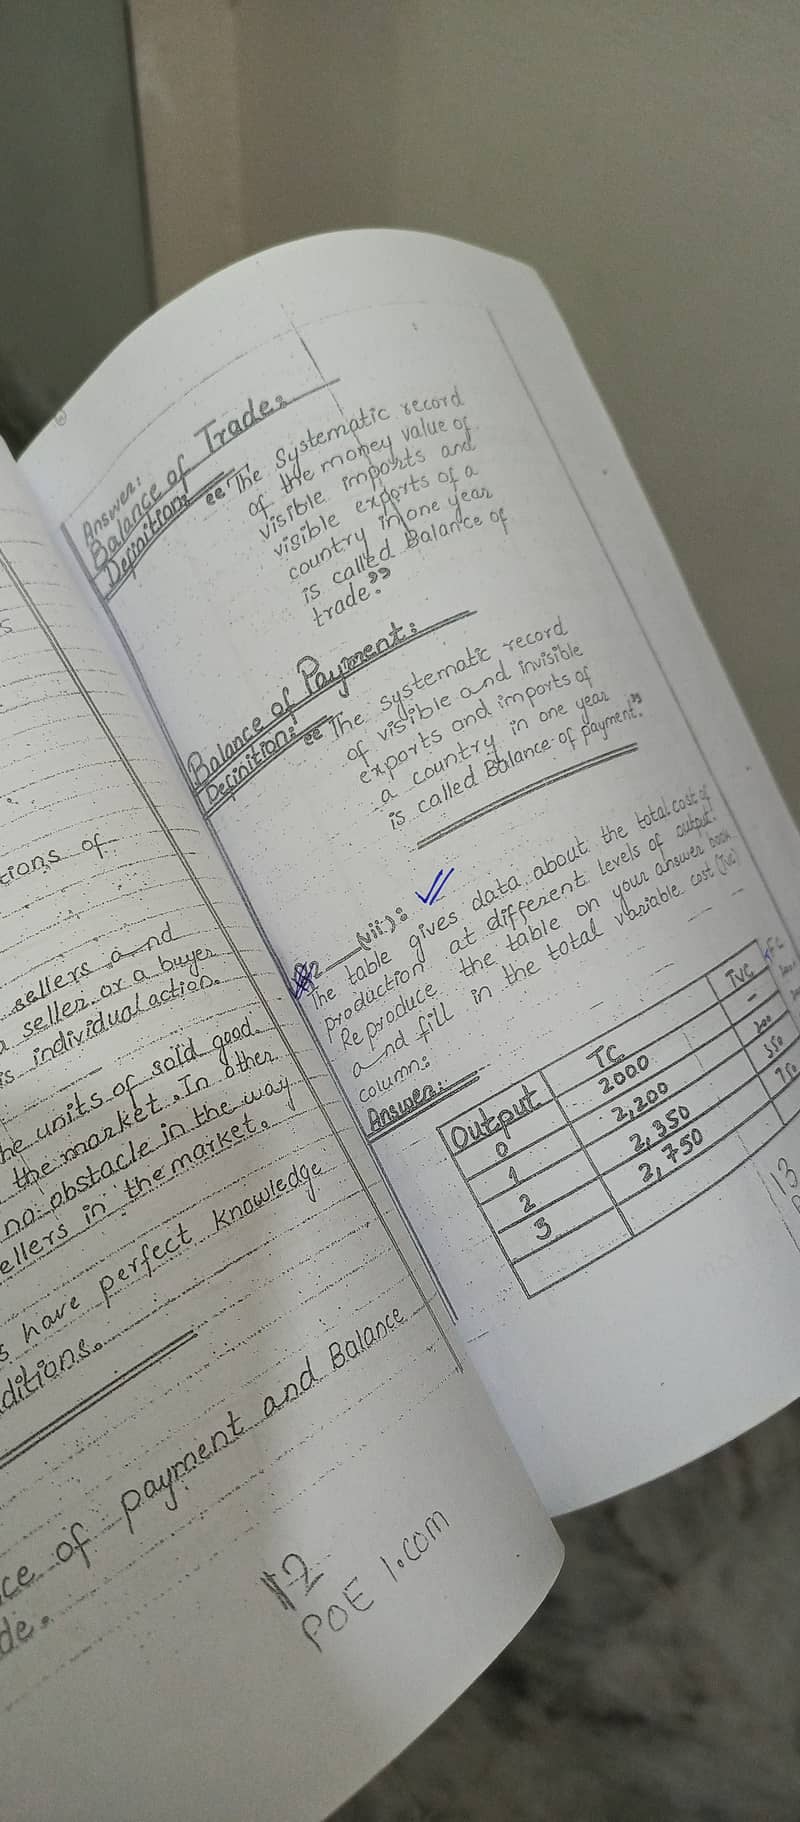 s
tions of
sellers and
a seller or a buyer
is individual action.
he units of sold good
the market. In other
no obstacle in the way
ellers in the market.
s have perfect knowledge
ditions.
ce of payment and Balance
de.
12
POE 1.COM
Answer:
Balance of Trade:
Definition: "The Systematic record
of the money value of
visible imports and
visible exports of a
country in one year
is called Balance of
trade."
Balance of Payment:
Definition: "The systematic record
of visible and invisible
exports and imports of
a country in one year
is called Balance of payment."
(vii):
The table gives data about the total cost of
production at different levels of output.
Reproduce the table on your answer book
and fill in the total variable cost (TVC)
column:
Answer:
Output TC TVC
0 2000 -
1 2,200 200
2 2,350 350
3 2,750 750
13